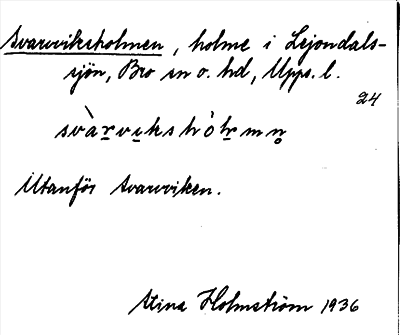 Svarvviksholmen, holme i Lejondals-
sjön, Bro sn o. hd, Upps. l.
24
svàrvikshòlrmn
Utanför Svarvviken.
Stina Holmström 1936